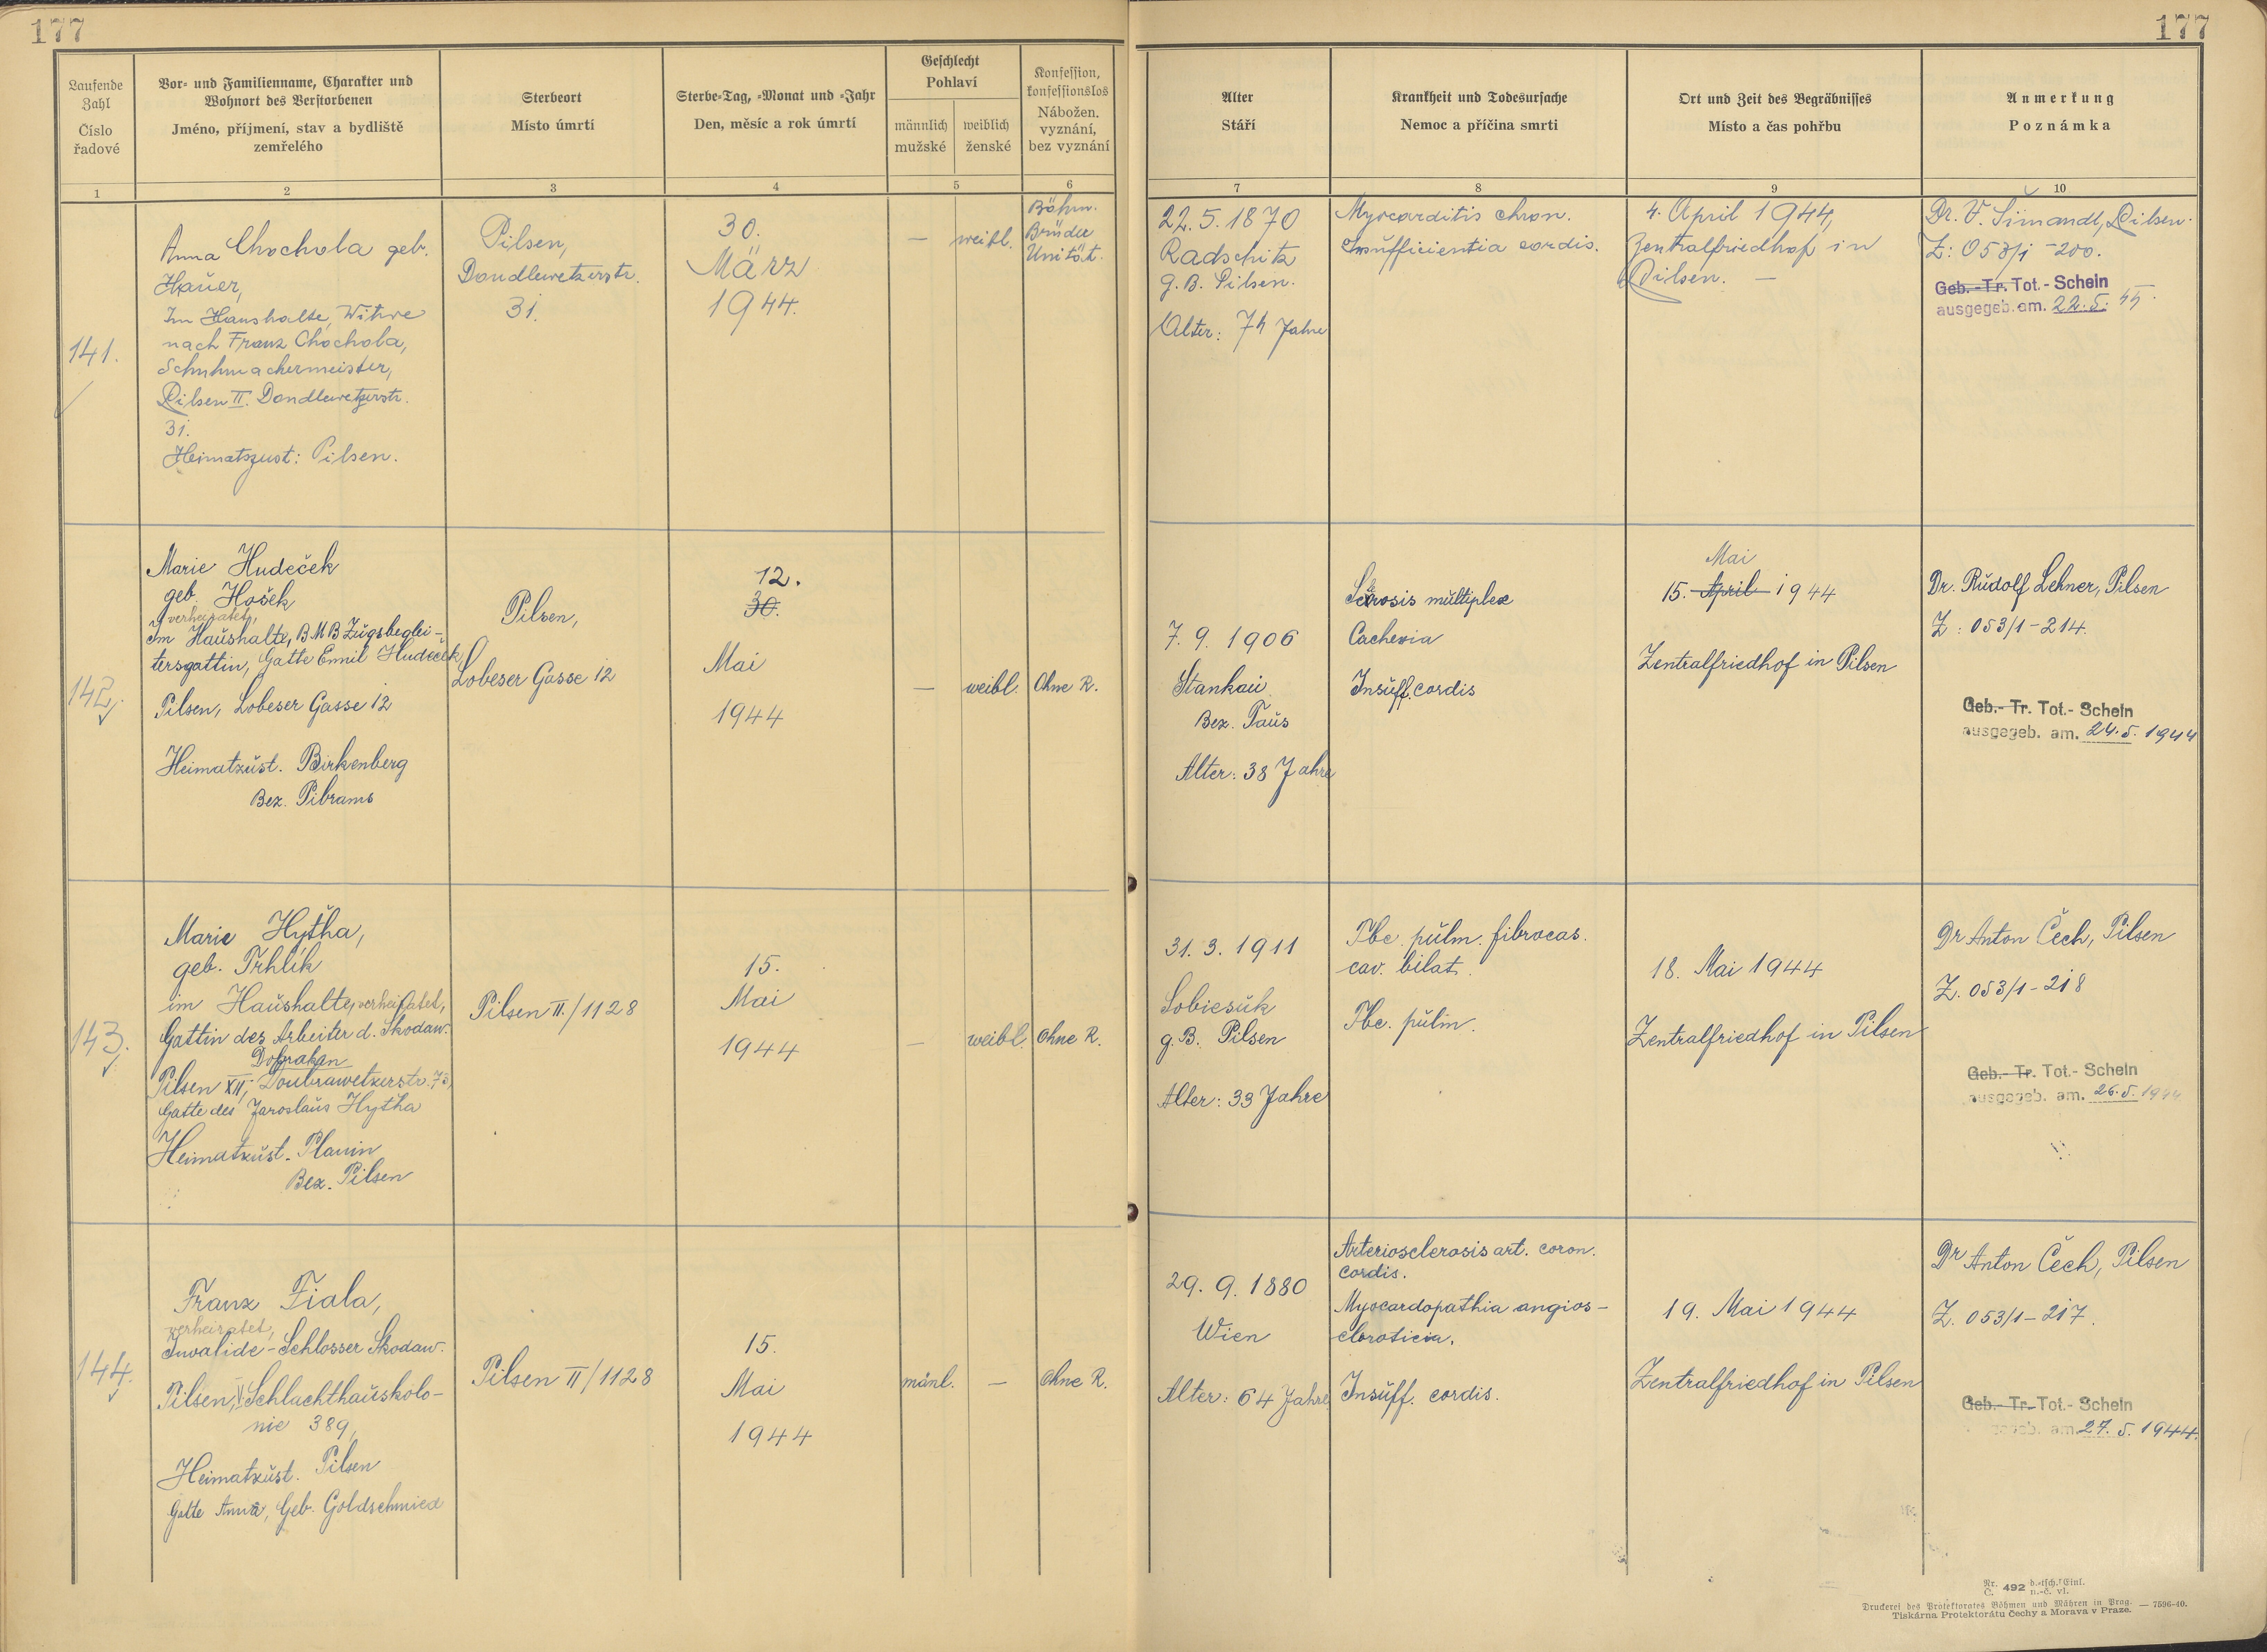 177
177
Laufende
Zahl
Číslo
řadové
Vor- und Familienname, Charakter und
Wohnort des Verstorbenen
Jméno, příjmení, stav a bydliště
zemřelého
Sterbeort
Místo úmrtí
Sterbe-Tag, -Monat und -Jahr
Den, měsíc a rok úmrtí
Geschlecht
Pohlaví
männlich
mužské
weiblich
ženské
Konfession,
konfessionslos
Nábožen.
vyznání,
bez vyznání
Alter
Stáří
Krankheit und Todesursache
Nemoc a příčina smrti
Ort und Zeit des Begräbnisses
Místo a čas pohřbu
Anmerkung
Poznámka
1
2
3
4
5
6
7
8
9
10
141.
Anna Chochola geb.
Hauer,
Im Haushalte, Witwe
nach Franz Chochola,
Schuhmachermeister,
Pilsen II. Dondlewetzerstr.
31.
Heimatszust: Pilsen.
Pilsen,
Dondlewetzerstr.
31.
30.
März
1944.
—
weibl.
Böhm.
Brüder
Unität.
22.5.1870
Radschitz
g. B. Pilsen.
Alter: 74 Jahre
Myocarditis chron.
Insufficientia cordis.
4. April 1944,
Zentralfriedhof in
Pilsen. —
Dr. V. Šimandl, Pilsen.
Z: 053/1 - 200.
Geb.-Tr. Tot.- Schein
ausgegeb. am. 22. 5. 44.
142.
Marie Hudeček
geb. Hošek
verheiratet,
Im Haushalte, BMB Zugsbeglei-
tersgattin, Gatte Emil Hudeček
Pilsen, Lobeser Gasse 12
Heimatzust. Birkenberg
Bez. Pibrams
Pilsen,
Lobeser Gasse 12
12.
30.
Mai
1944
—
weibl.
Ohne R.
7. 9. 1906
Stankau
Bez. Taus
Alter: 38 Jahre
multiplex
Cachexia
Insuff. cordis
Mai
15. April 1944
Zentralfriedhof in Pilsen
Dr. Rudolf Lehner, Pilsen
Z: 053/1 - 214.
Geb.- Tr. Tot.- Schein
ausgegeb. am. 24. 5. 1944
143.
Marie Hytha,
geb. Trhlík
im Haushalte, verheiratet,
Gattin des Arbeiter d. Skodaw.
Dobrzaken
Pilsen XII, Doubrawetzerstr. 73,
Gatte des Jaroslaus Hytha
Heimatzust. Planin
Bez. Pilsen
Pilsen II./1128
15.
Mai
1944
—
weibl
Ohne R.
31. 3. 1911
Sobiesuk
g. B. Pilsen
Alter: 33 Jahre
Tbc. pulm. fibrocas.
cav. bilat.
Tbc. pulm.
18. Mai 1944
Zentralfriedhof in Pilsen
Dr Anton Čech, Pilsen
Z. 053/1 - 218
Geb.- Tr. Tot.- Schein
ausgegeb. am. 26. 5. 1944
144.
Franz Fiala,
verheiratet,
Invalide - Schlosser Skodaw.
Pilsen, Schlachthauskolo-
nie 389,
Heimatzust. Pilsen
Gatte Anna, Geb. Goldschmied
Pilsen II/1128
15.
Mai
1944
mänl.
—
Ohne R.
29. 9. 1880
Wien
Alter: 64 Jahre
Arteriosclerosis art. coron.
cordis.
Myocardopathia angios-
cleroticia.
Insuff. cordis.
19. Mai 1944
Zentralfriedhof in Pilsen
Dr Anton Čech, Pilsen
Z. 053/1 - 217.
Geb.- Tr. Tot.- Schein
am. 27. 5. 1944.
Nr. 492 d.-tsch. Einl.
Č. n.-č. vl.
Druckerei des Protektorates Böhmen und Mähren in Prag. — 7596-40.
Tiskárna Protektorátu Čechy a Morava v Praze.